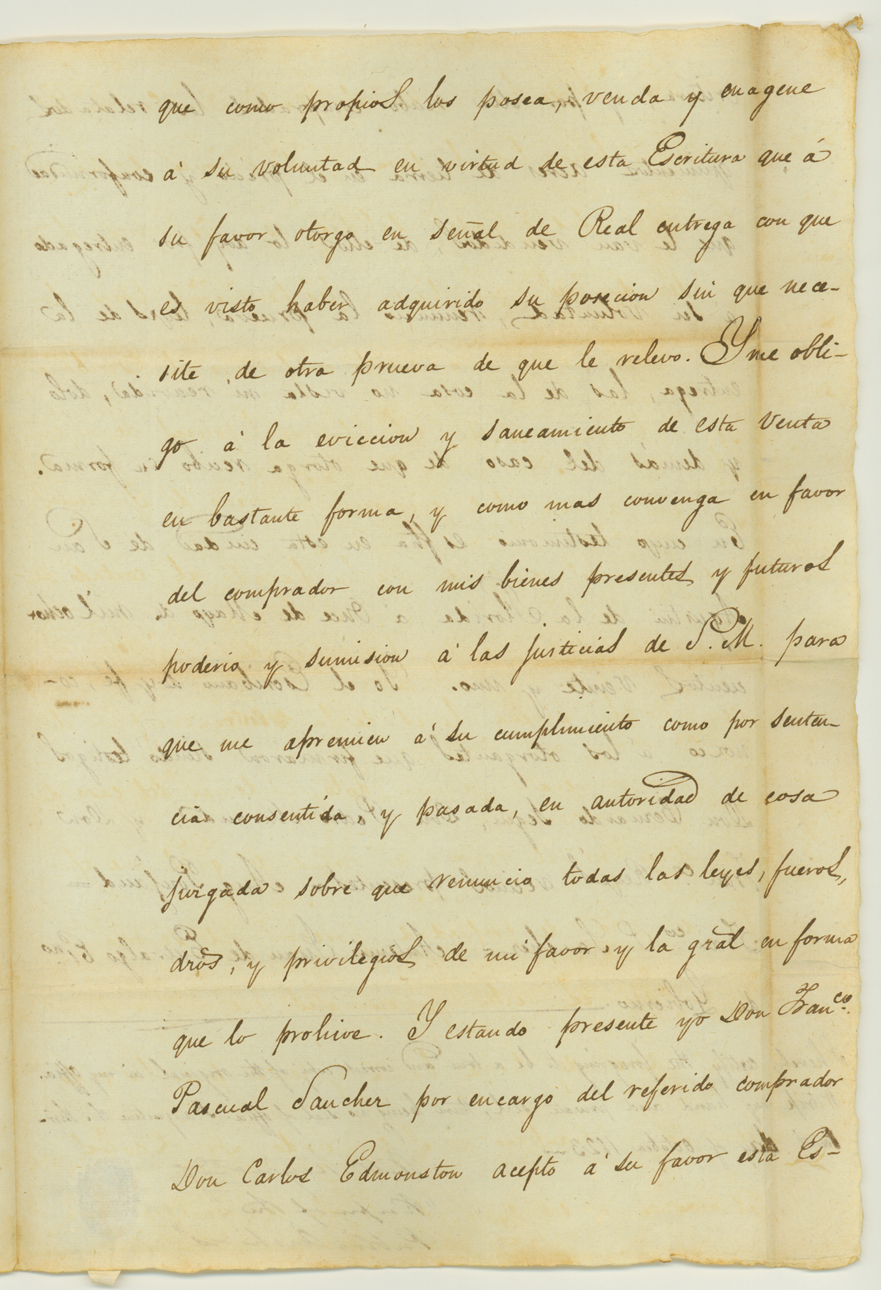 que como propios los posea, venda y enagene
á su voluntad en virtud de esta Escritura que á
su favor otorgo en señal de Real entrega con que
es visto haber adquirido su posecion sin que nece-
site de otra prueva de que le relevo. Y me obli-
go á la eviccion y saneamiento de esta Venta
en bastante forma, y como mas convenga en favor
del comprador con mis bienes presentes y futuros
poderio y sumision á las justicias de S. M. para
que me apremien á su cumplimiento como por senten-
cia consentida, y pasada, en autoridad de cosa
juzgada sobre que renuncio todas las leyes, fueros,
dros, y privilegios de mi favor y la gral en forma
que lo prohive. Y estando presente yo Don Franco.
Pascual Sanchez por encargo del referido comprador
Don Carlos Edmonston acepto á su favor esta Es-